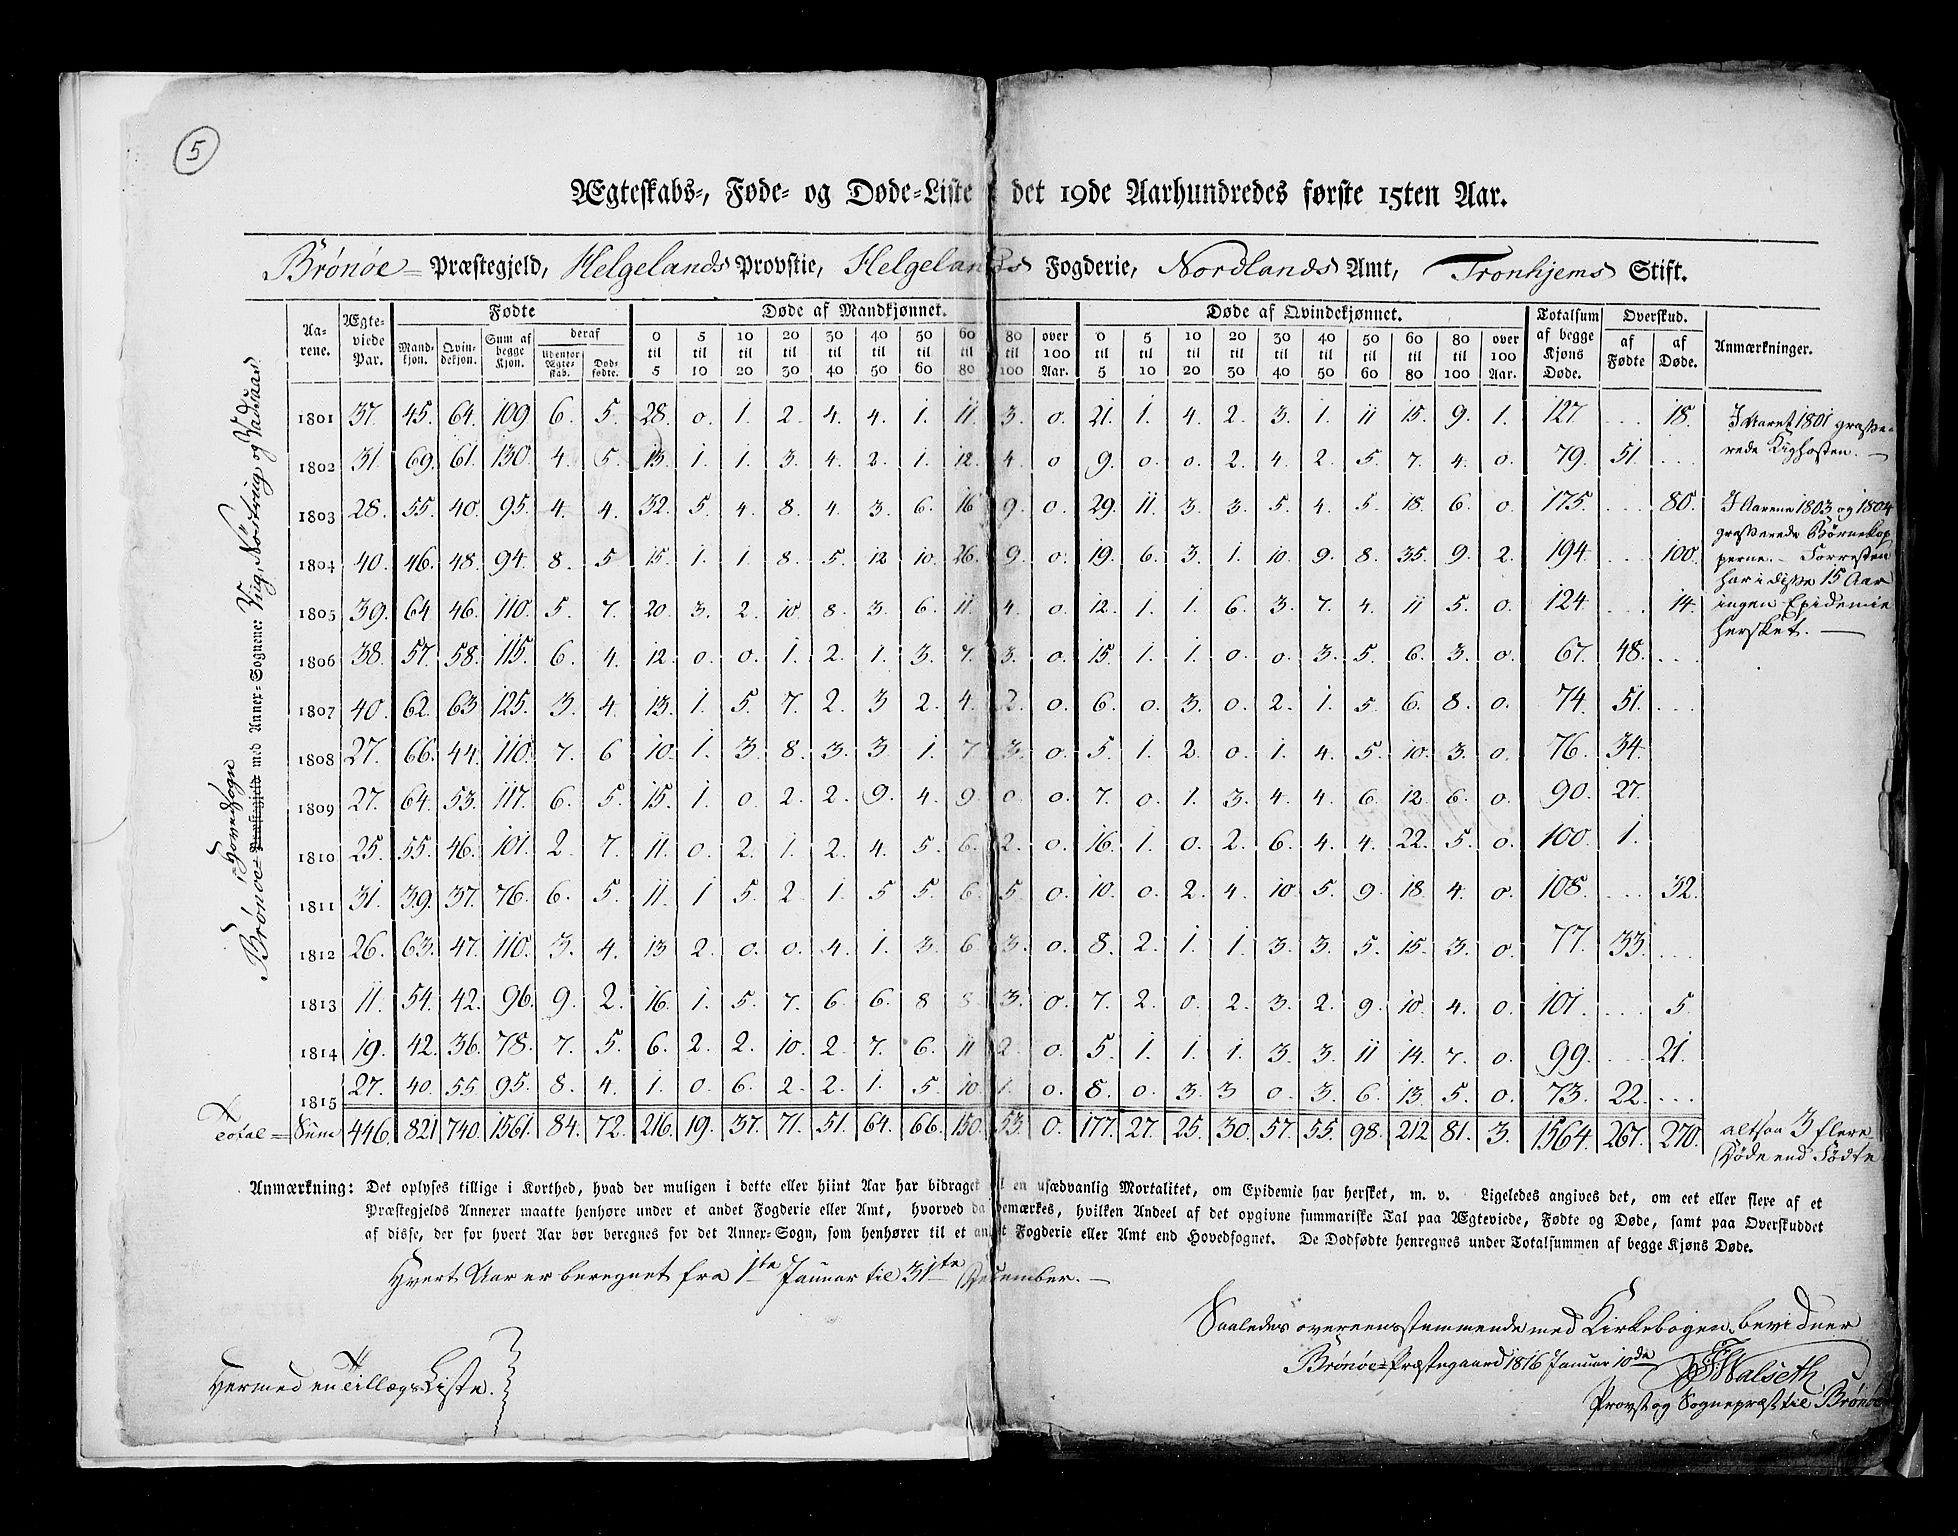 5
Ægteskabs-, Føde- og Døde-Liste det 19de Aarhundredes første 15ten Aar.
Brönöe Præstegjeld, Helgelands Provstie, Helgelands Fogderie, Nordlands Amt, Tronhjems Stift.
Brönöe Præstegjeld med Annex-Sognene: Viig, Nöstvig og Vadsaas
Hovedsogn
Aarene. Ægteviede Par. Fødte Mandkjøn. Qvindekjøn. Sum af begge Kjøn. deraf Udenfor Ægteskab. Dødfødte. Døde af Mandkjønnet. 0 til 5 5 til 10 10 til 20 20 til 30 30 til 40 40 til 50 50 til 60 60 til 80 80 til 100 over 100 Aar. Døde af Qvindekjønnet. 0 til 5 5 til 10 10 til 20 20 til 30 30 til 40 40 til 50 50 til 60 60 til 80 80 til 100 over 100 Aar. Totalsum af begge Kjøns Døde. Overskud. af Fødte af Døde. Anmærkninger.
1801 37. 45. 64. 109 6. 5. 28. 0. 1. 2. 4. 4. 1. 11. 3. 0. 21. 1. 4. 2. 3. 1. 11 15. 9. 1. 127. ... 18.
1802 31. 69. 61. 130. 4. 5. 13. 1. 1. 3. 4. 2. 1. 12. 4. 0 9. 0. 0. 2. 4. 2. 5. 7. 4. 0. 79. 51. ...
1803 28. 55. 40. 95. 4. 4. 32. 5. 4. 8. 4. 3. 6. 16. 9. 0. 29. 11. 3. 3. 5. 4. 5. 18. 6. 0. 175. ... 80.
1804 40. 46. 48. 94. 8. 5 15. 1. 1. 8. 5. 12 10. 26. 9. 0. 19. 6. 3. 1. 10. 9. 8. 35. 9. 2. 194. ... 100.
1805 39. 64 46. 110. 5. 7. 20 3. 2. 10 8. 3. 6. 11. 4. 0. 12. 1. 1. 6. 3. 7. 4. 11 5. 0. 124. ... 14.
1806 38. 57. 58. 115. 6. 4. 12. 0. 0. 1. 2. 1. 3. 7. 3. 0. 15. 1. 1. 0. 0. 3. 5. 6. 3. 0. 67. 48. ...
1807 40. 62. 63 125. 3. 4. 13. 1. 5. 7. 2. 3 2. 4. 2. 0. 6. 0. 3. 0. 2. 1. 5. 6. 8. 0. 74. 51. ...
1808 27. 66. 44. 110. 7. 6 10. 1. 3 8. 3. 3 1. 7 3. 0. 5. 1. 2. 0. 1. 4. 5. 10. 3. 0. 76. 34.
1809 27. 64. 53. 117. 6. 5. 15. 1. 0 2. 2. 9. 4. 9. 0 0. 7. 0. 1. 3. 4. 4. 6. 12. 6. 0. 90. 27.
1810 25. 55. 46. 101. 2. 7. 11. 0. 2. 1. 2. 4. 5. 6. 2. 0. 16. 1. 0. 2. 6. 4. 4. 22. 5. 0. 100. 1.
1811 31. 39. 37. 76. 6. 5. 11. 1 5. 2 1. 5 5. 6. 5 0. 10. 0. 2. 4. 10 5. 9. 18. 4. 0. 108. ... 32.
1812 26. 63. 47. 110. 3. 4. 13 2. 0. 0. 4. 1. 3. 6 3. 0. 8. 2. 1. 1. 3. 3. 5. 15. 3. 0. 77. 33. ...
1813 11. 54. 42. 96. 9. 2. 16. 1. 5. 7. 6 6. 8 8. 3. 0. 7. 2. 0. 2. 3. 2. 9. 10. 4. 0. 101. ... 5.
1814 19. 42. 36. 78. 7. 5. 6. 2. 2. 10. 2. 7. 6. 11 2. 0. 5. 1. 1. 1. 3. 3. 11 14. 7. 0. 99. ... 21.
1815 27. 40. 55 95. 8. 4. 1. 0. 6. 2. 2. 1. 5. 10 1. 0. 8. 0. 3. 3 0. 3. 6. 13. 5. 0. 73. 22. ...
Total = Sum 446. 821 740. 1561. 84. 72. 216. 19. 37. 71. 51. 64. 66. 150. 53. 0. 177. 27. 25. 30. 57. 55. 98. 212 81. 3. 1564. 267. 270.
I Aaret 1801 grasse-
rede Kighosten.
I Aarene 1803 og 1804
grasserede Börnekop
perne. Forresten
har i disse 15 Aar
ingen Epidemie
hersket.
altsaa 3 flere
Döde end Födte
Anmærkning: Det oplyses tillige i Korthed, hvad der muligen i dette eller hiint Aar har bidraget en usædvanlig Mortalitet, om Epidemie har hersket, m. v. Ligeledes angives det, om eet eller flere af et
Præstegjelds Annexer maatte henhøre under et andet Fogderie eller Amt, hvorved da bemærkes, hvilken Andeel af det opgivne summariske Tal paa Ægteviede, Fødte og Døde, samt paa Overskuddet
af disse, der for hvert Aar bør beregnes for det Annex-Sogn, som henhører til et andet Fogderie eller Amt end Hovedsognet. De Dødfødte henregnes under Totalsummen af begge Kjøns Døde.
Hvert Aar er beregnet fra 1te Januar til 31te December.
Saaledes overeensstemmende med Kirkebogen, bevidner
Brönöe Præstegaard 1816 Januar 10de
Walseth
Provst og Sognepræst til Brönöe
Hermed en Tillægs Liste.